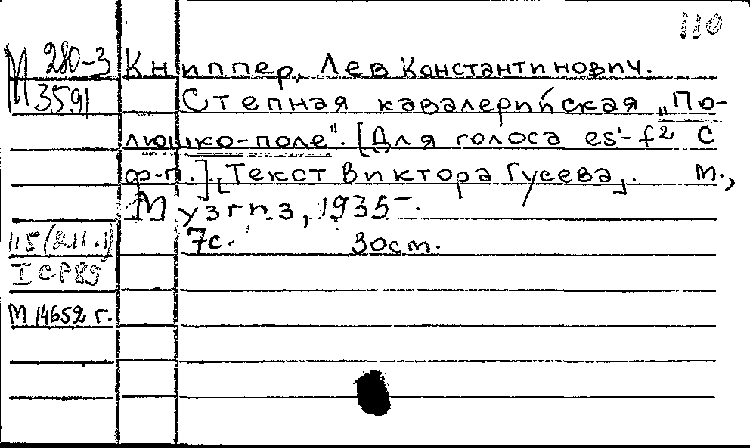 110
М 280-3
М 3591
Книппер, Лев Константинович.
Степная кавалерийская „По-
люшко-поле". [Для голоса es'-f² с
ф-п.]. [Текст Виктора Гусева]. М.,
Музгиз, 1935.
7с. 30 ст.
М 14652 г.